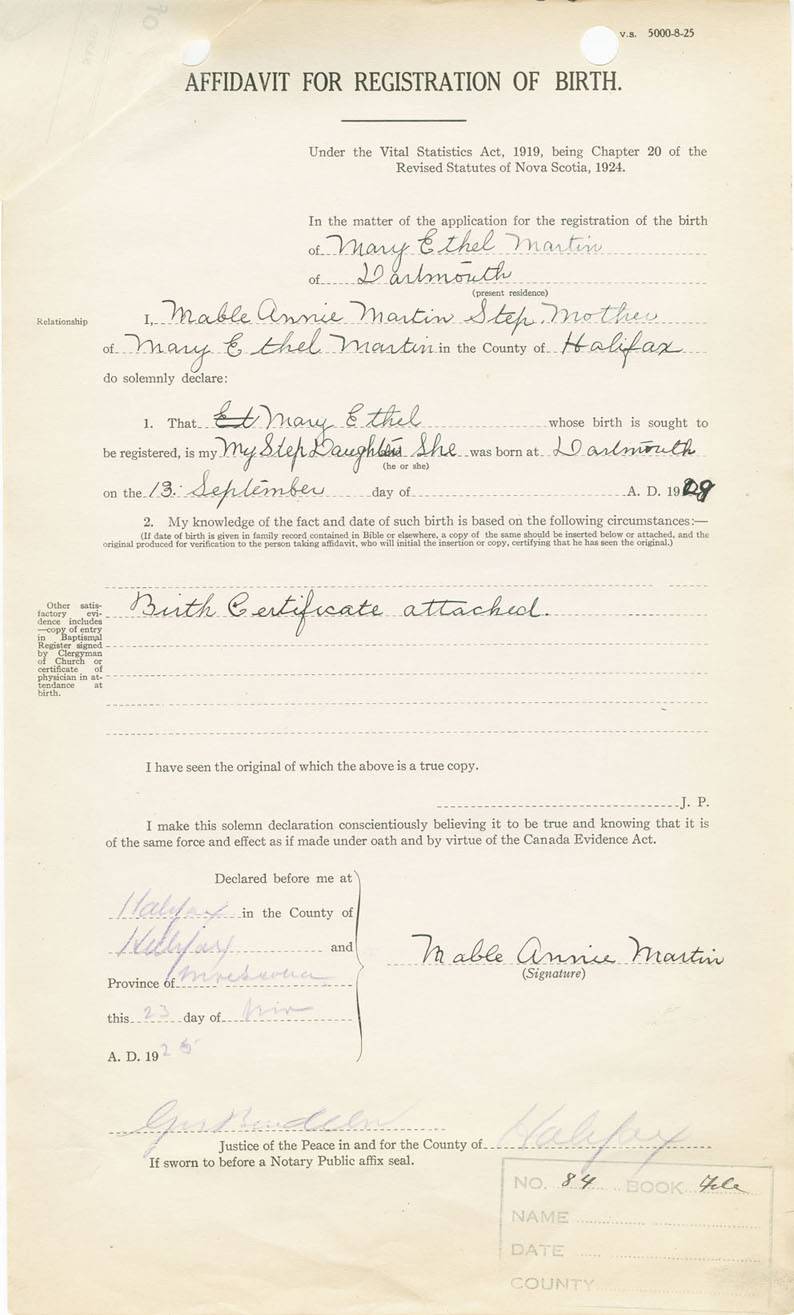 V.S. 5000-8-25
AFFIDAVIT FOR REGISTRATION OF BIRTH.
Under the Vital Statistics Act, 1919, being Chapter 20 of the
Revised Statutes of Nova Scotia, 1924.
In the matter of the application for the registration of the birth
of Mary Ethel Martin
of Dartmouth
(present residence)
Relationship
I, Mable Annie Martin Step Mother
of Mary Ethel Martin in the County of Halifax
do solemnly declare:
1. That Mary Ethel whose birth is sought to
be registered, is my My Step Daughter She was born at Dartmouth
(he or she)
on the 13 September day of A. D. 19
2. My knowledge of the fact and date of such birth is based on the following circumstances:—
(If date of birth is given in family record contained in Bible or elsewhere, a copy of the same should be inserted below or attached, and the
original produced for verification to the person taking affidavit, who will initial the insertion or copy, certifying that he has seen the original.)
Other satis-
factory evi-
dence includes
—copy of entry
in Baptismal
Register signed
by Clergyman
of Church or
certificate of
physician in at-
tendance at
birth.
Birth Certificate attached.
I have seen the original of which the above is a true copy.
J. P.
I make this solemn declaration conscientiously believing it to be true and knowing that it is
of the same force and effect as if made under oath and by virtue of the Canada Evidence Act.
Declared before me at
Halifax in the County of
Halifax and
Province of
this 23 day of
A. D. 19
Mable Annie Martin
(Signature)
Justice of the Peace in and for the County of Halifax
If sworn to before a Notary Public affix seal.
NO. 84 BOOK
NAME
DATE
COUNTY